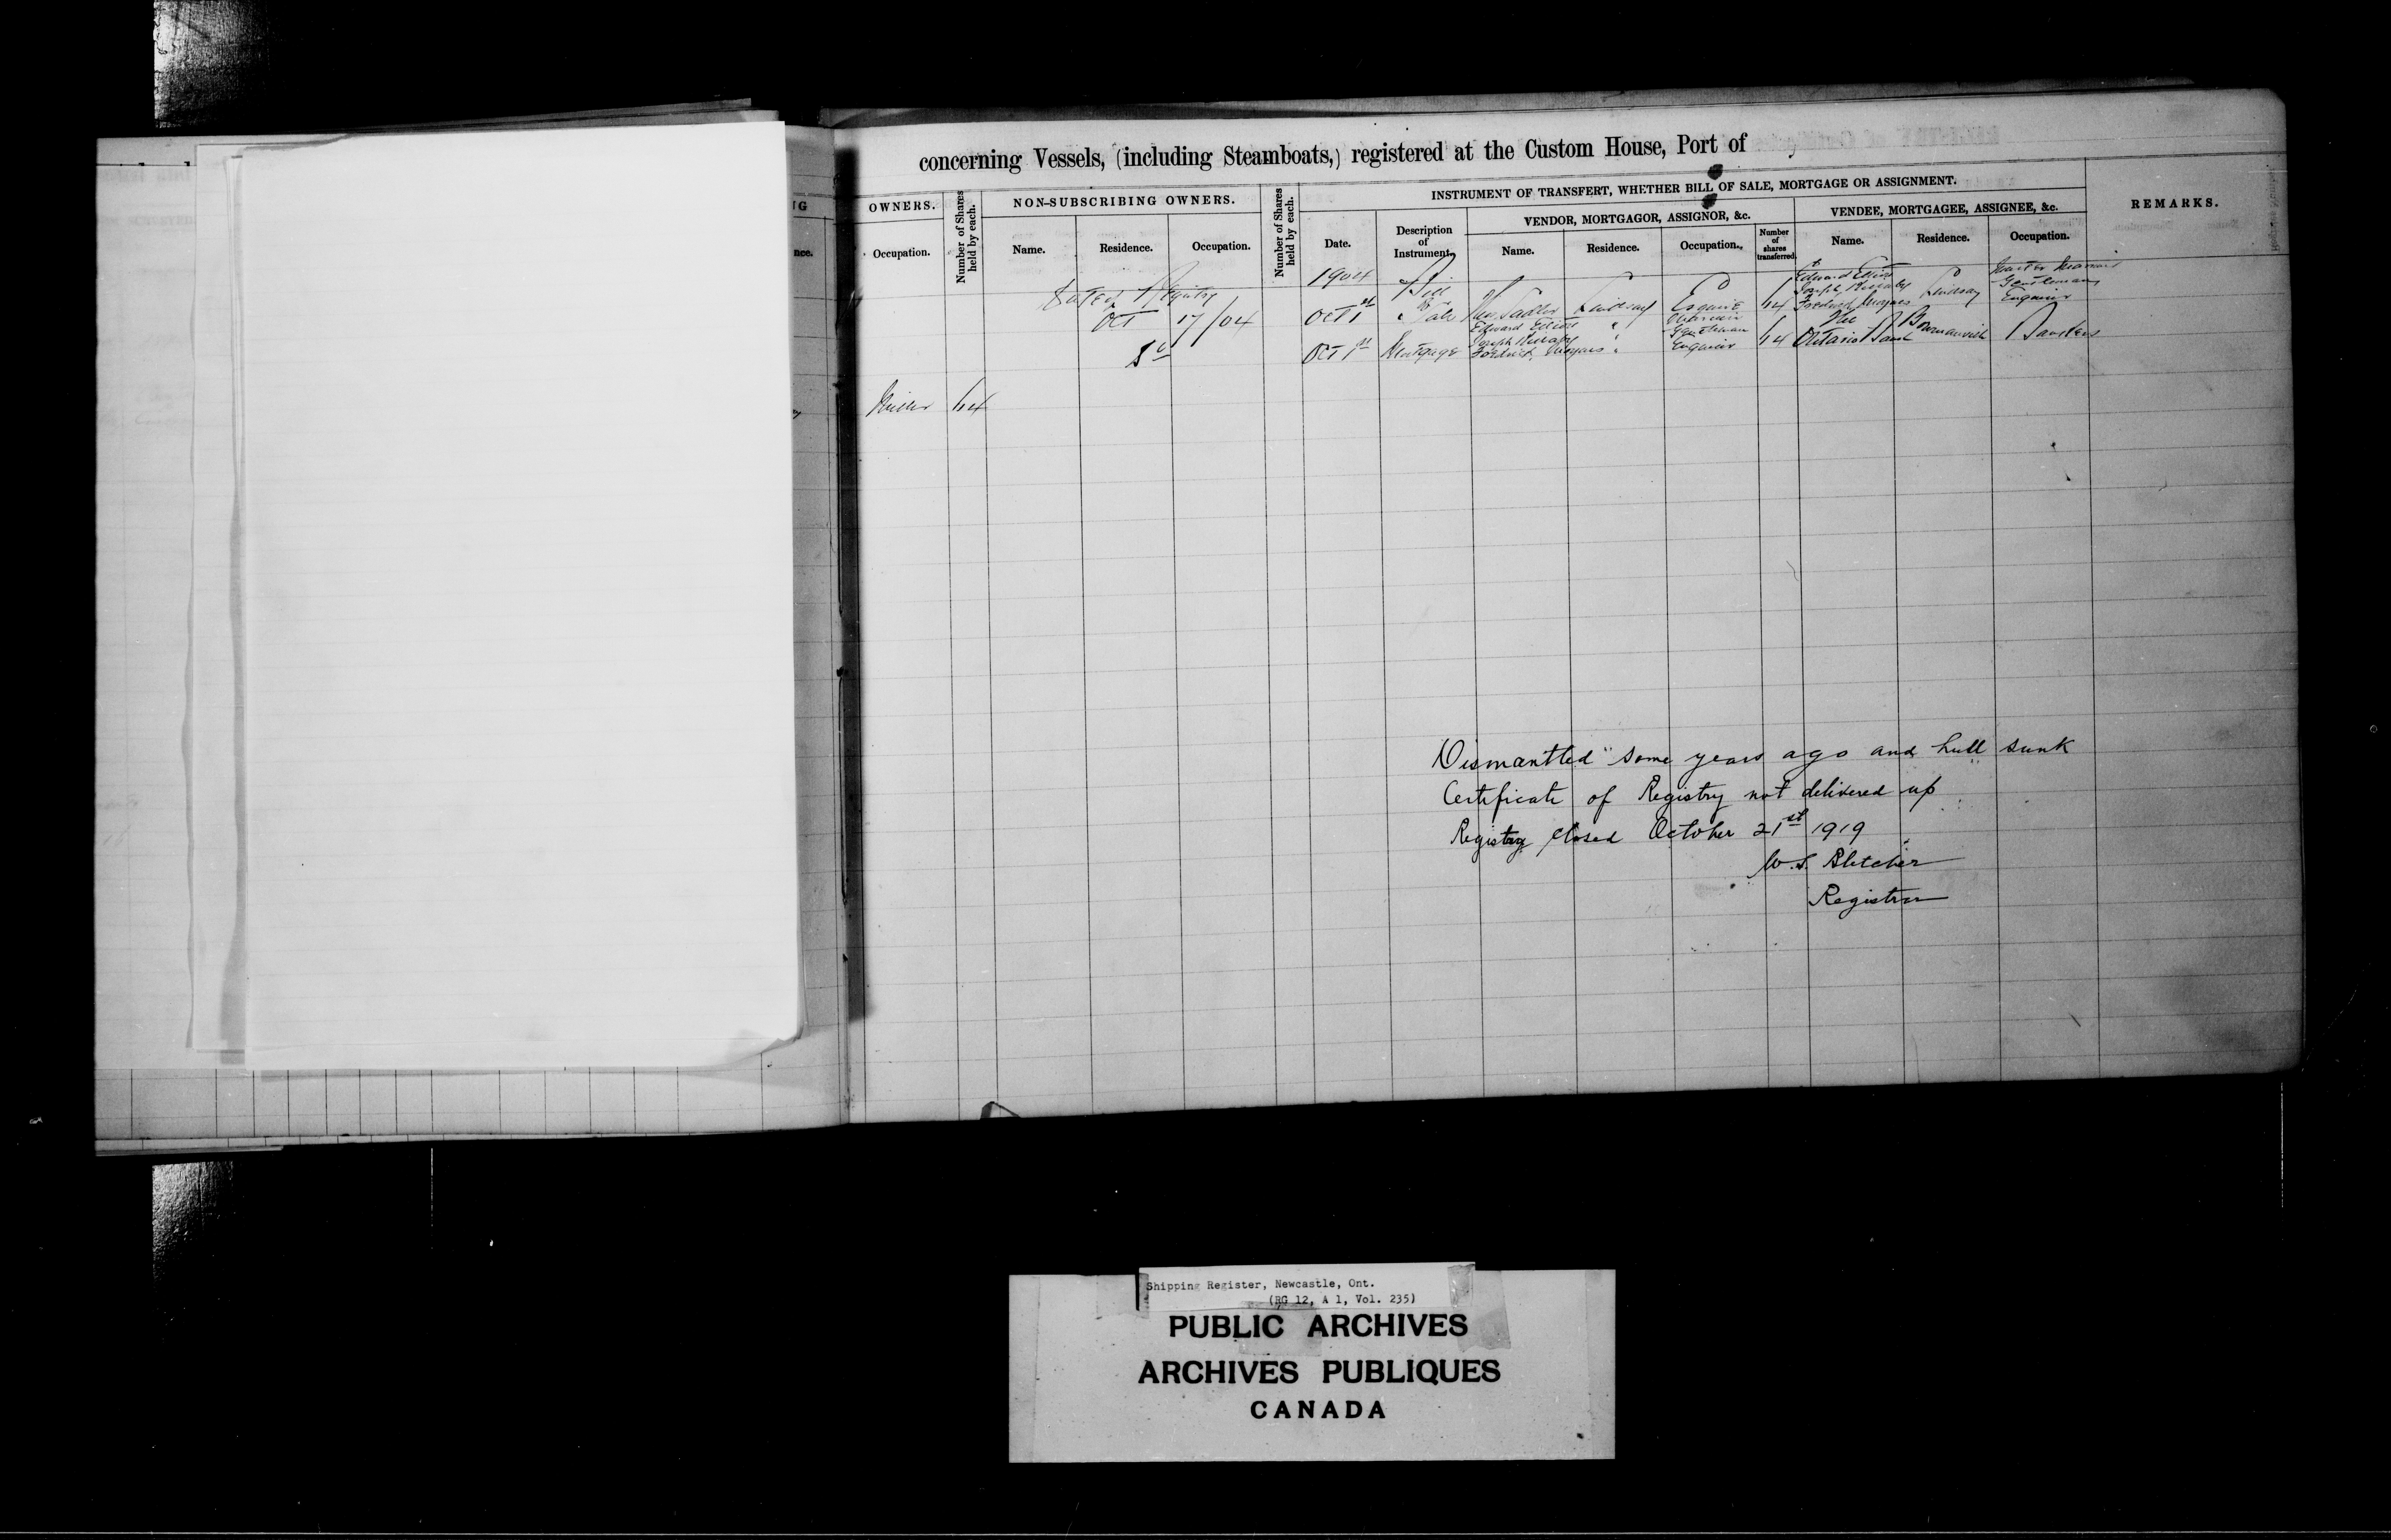 concerning Vessels, (including Steamboats,) registered at the Custom House, Port of
OWNERS.
Number of Shares held by each.
NON-SUBSCRIBING OWNERS.
Number of Shares held by each.
INSTRUMENT OF TRANSFERT, WHETHER BILL OF SALE, MORTGAGE OR ASSIGNMENT.
REMARKS.
VENDOR, MORTGAGOR, ASSIGNOR, &c.
VENDEE, MORTGAGEE, ASSIGNEE, &c.
nce.
Occupation.
Name.
Residence.
Occupation.
Date.
Description of Instrument.
Name.
Residence.
Occupation.
Number of shares transferred.
Name.
Residence.
Occupation.
1904
Bill
Edward Elliott
Master Mariner
Date of Registry
Joseph
Gentleman
Oct 17/04
Oct 1st
Sale
Wm Sadler
Lindsay
Esquire
64
Lindsay
Engineer
Do
Oct 1st
Mortgage
Edward Elliott
Mariner
Joseph
Gentleman
Engineer
64
The Ontario Bank
Bowmanville
Bankers
Miller
64
"Dismantled" some years ago and hull sunk
Certificate of Registry not delivered up
Registry closed October 21st 1919
W.S. Bletcher
Registrar
Shipping Register, Newcastle, Ont.
(RG 12, A 1, Vol. 235)
PUBLIC ARCHIVES
ARCHIVES PUBLIQUES
CANADA